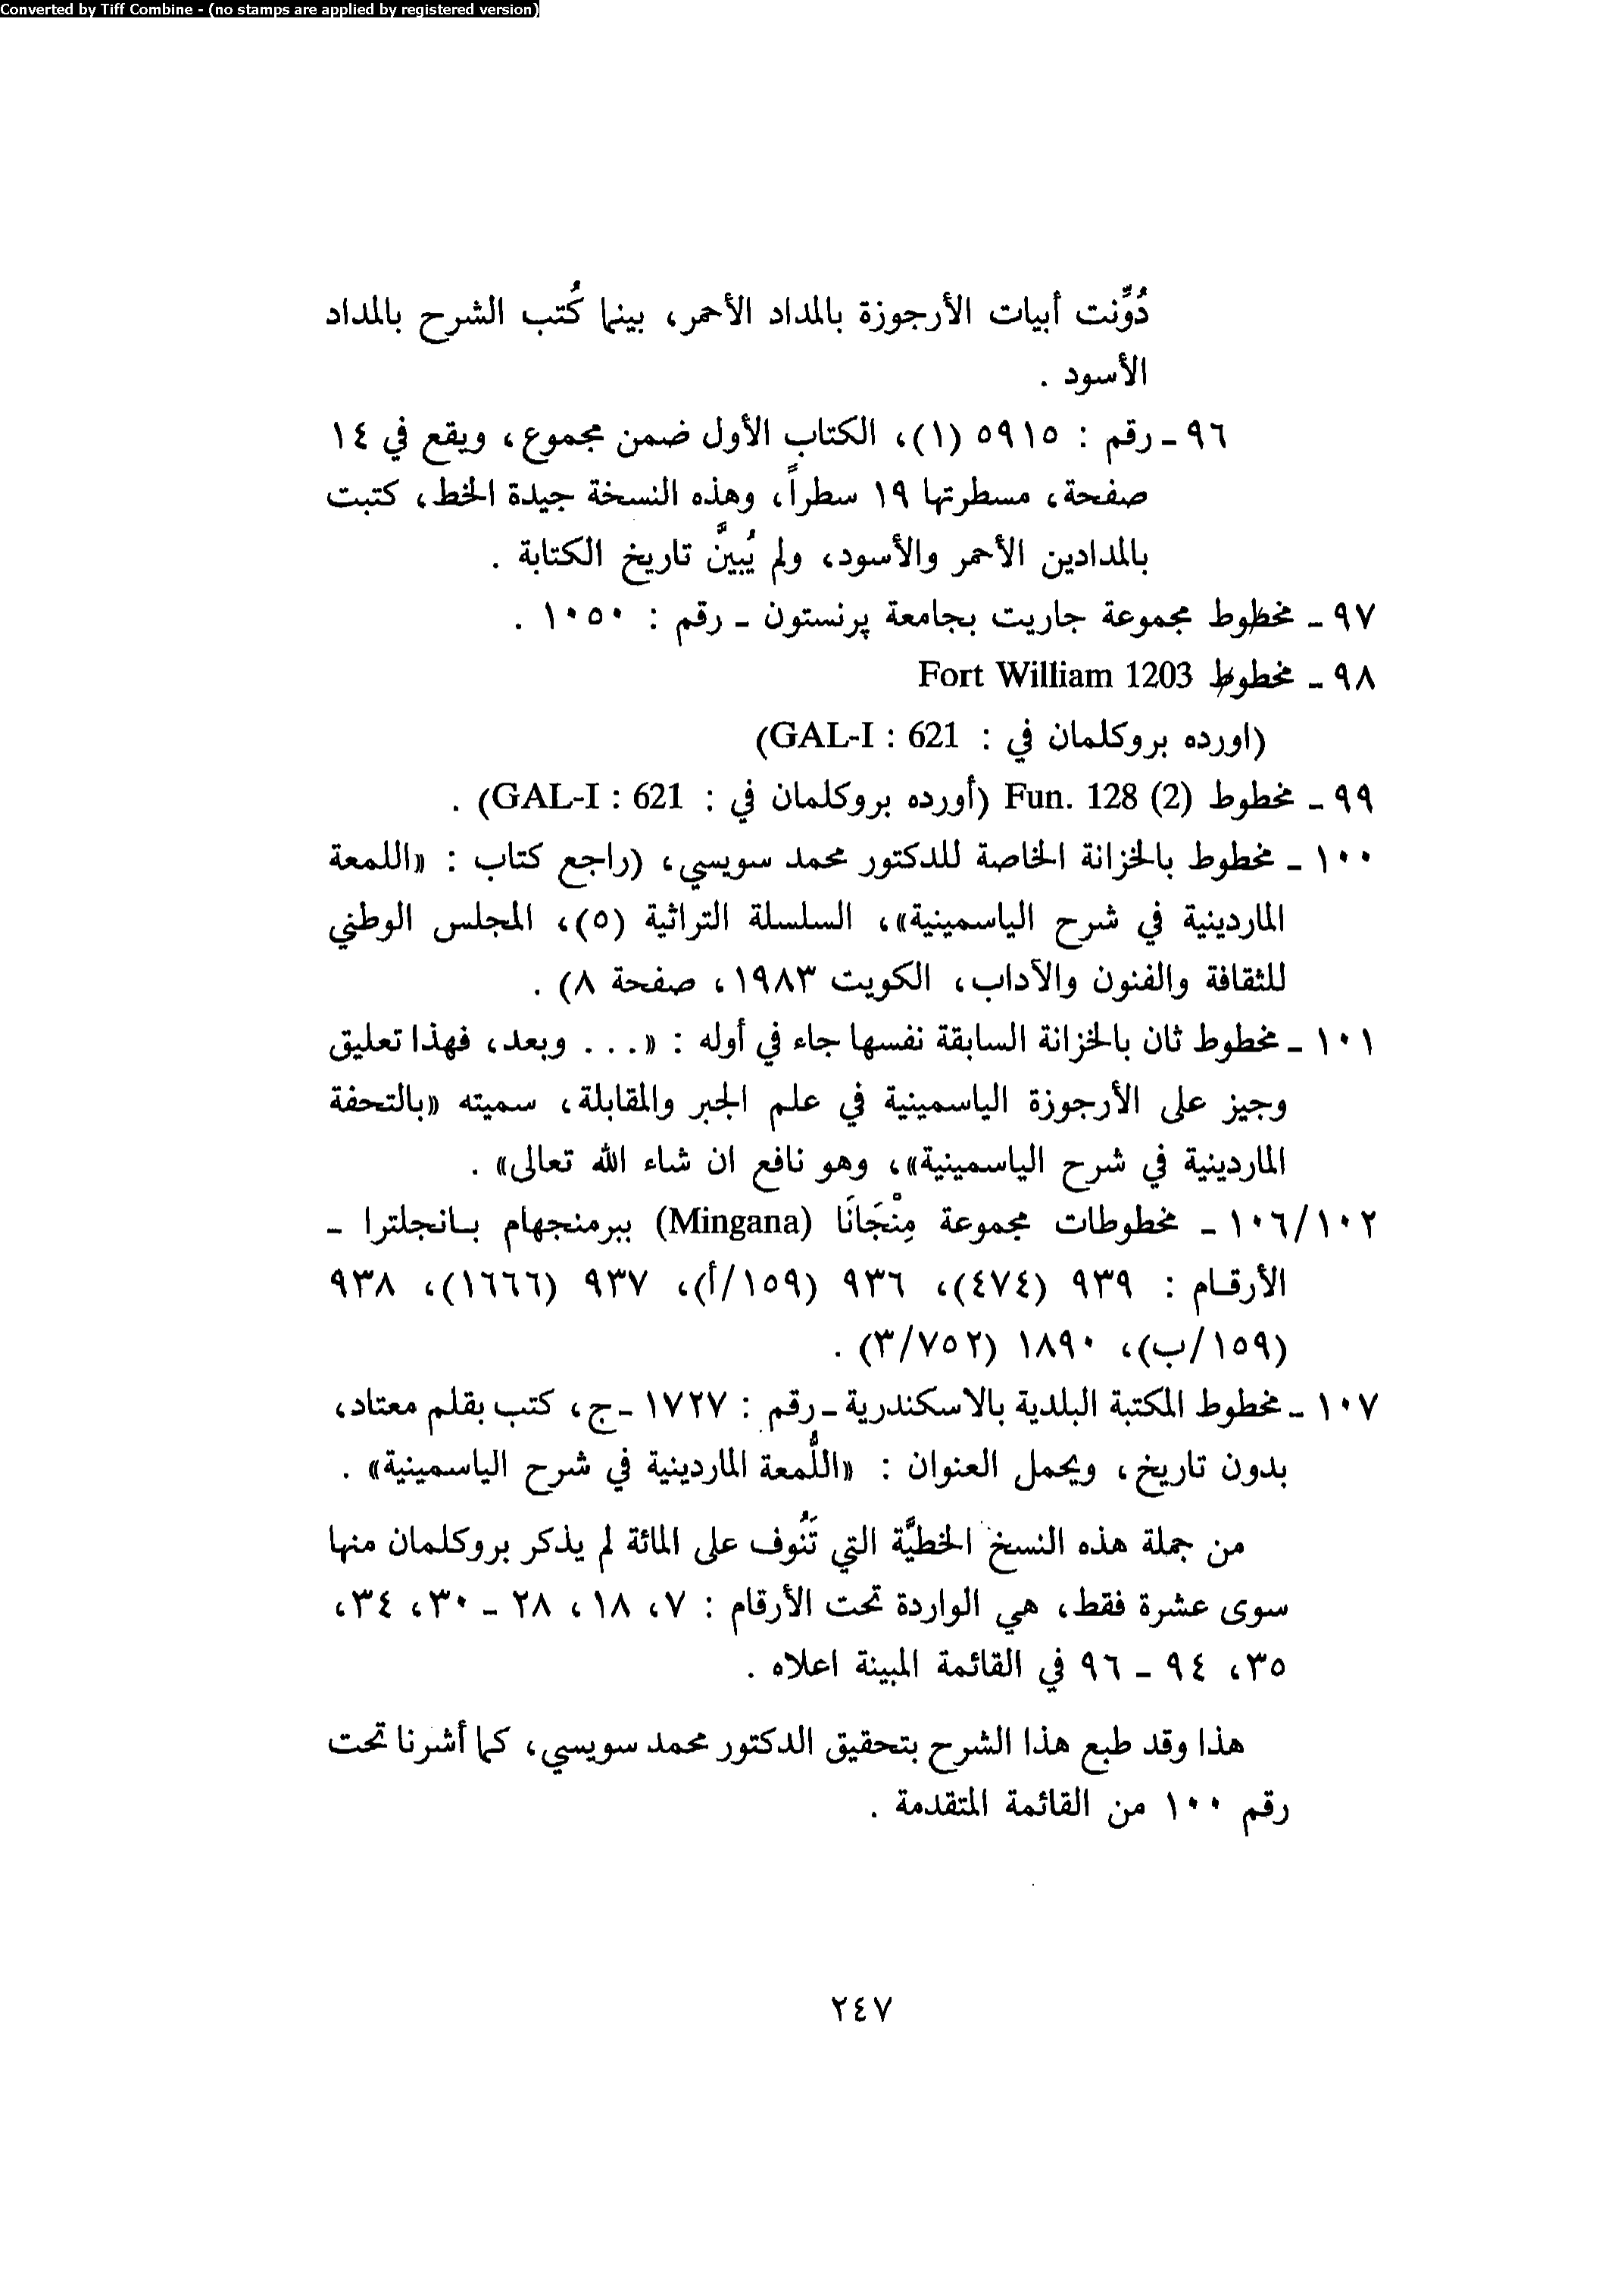 Converted by Tiff Combine - (no stamps are applied by registered version)
دُوِّنت أبيات الأرجوزة بالمداد الأحمر، بينما كُتب الشرح بالمداد
الأسود .
٩٦ - رقم : ٥٩١٥ (١)، الكتاب الأول ضمن مجموع، ويقع في ١٤
صفحة، مسطرتها ١٩ سطراً، وهذه النسخة جيدة الخط، كتبت
بالمدادين الأحمر والأسود، ولم يُبيَّن تاريخ الكتابة .
٩٧ - مخطوط مجموعة جاريت بجامعة پرنستون - رقم : ١٠٥٠ .
٩٨ - مخطوط Fort William 1203
(اورده بروكلمان في : GAL-I : 621)
٩٩ - مخطوط Fun. 128 (2) (أورده بروكلمان في : GAL-I : 621) .
١٠٠ - مخطوط بالخزانة الخاصة للدكتور محمد سويسي، (راجع كتاب : «اللمعة
الماردينية في شرح الياسمينية»، السلسلة التراثية (٥)، المجلس الوطني
للثقافة والفنون والآداب، الكويت ١٩٨٣، صفحة ٨) .
١٠١ - مخطوط ثان بالخزانة السابقة نفسها جاء في أوله : «... وبعد، فهذا تعليق
وجيز على الأرجوزة الياسمينية في علم الجبر والمقابلة، سميته «بالتحفة
الماردينية في شرح الياسمينية»، وهو نافع ان شاء الله تعالى» .
١٠٦/١٠٢ - مخطوطات مجموعة مِنْجَانَا (Mingana) ببرمنجهام بانجلترا -
الأرقام : ٩٣٩ (٤٧٤)، ٩٣٦ (١٥٩/أ)، ٩٣٧ (١٦٦٦)، ٩٣٨
(١٥٩/ب)، ١٨٩٠ (٣/٧٥٢) .
١٠٧ - مخطوط المكتبة البلدية بالاسكندرية - رقم : ١٧٢٧ - ج، كتب بقلم معتاد،
بدون تاريخ، ويحمل العنوان : «اللُّمعة الماردينية في شرح الياسمينية» .
من جملة هذه النسخ الخطيَّة التي تَنُوف على المائة لم يذكر بروكلمان منها
سوى عشرة فقط، هي الواردة تحت الأرقام : ٧، ١٨، ٢٨ - ٣٠، ٣٤،
٣٥، ٩٤ - ٩٦ في القائمة المبينة اعلاه .
هذا وقد طبع هذا الشرح بتحقيق الدكتور محمد سويسي، كما أشرنا تحت
رقم ١٠٠ من القائمة المتقدمة .
٢٤٧